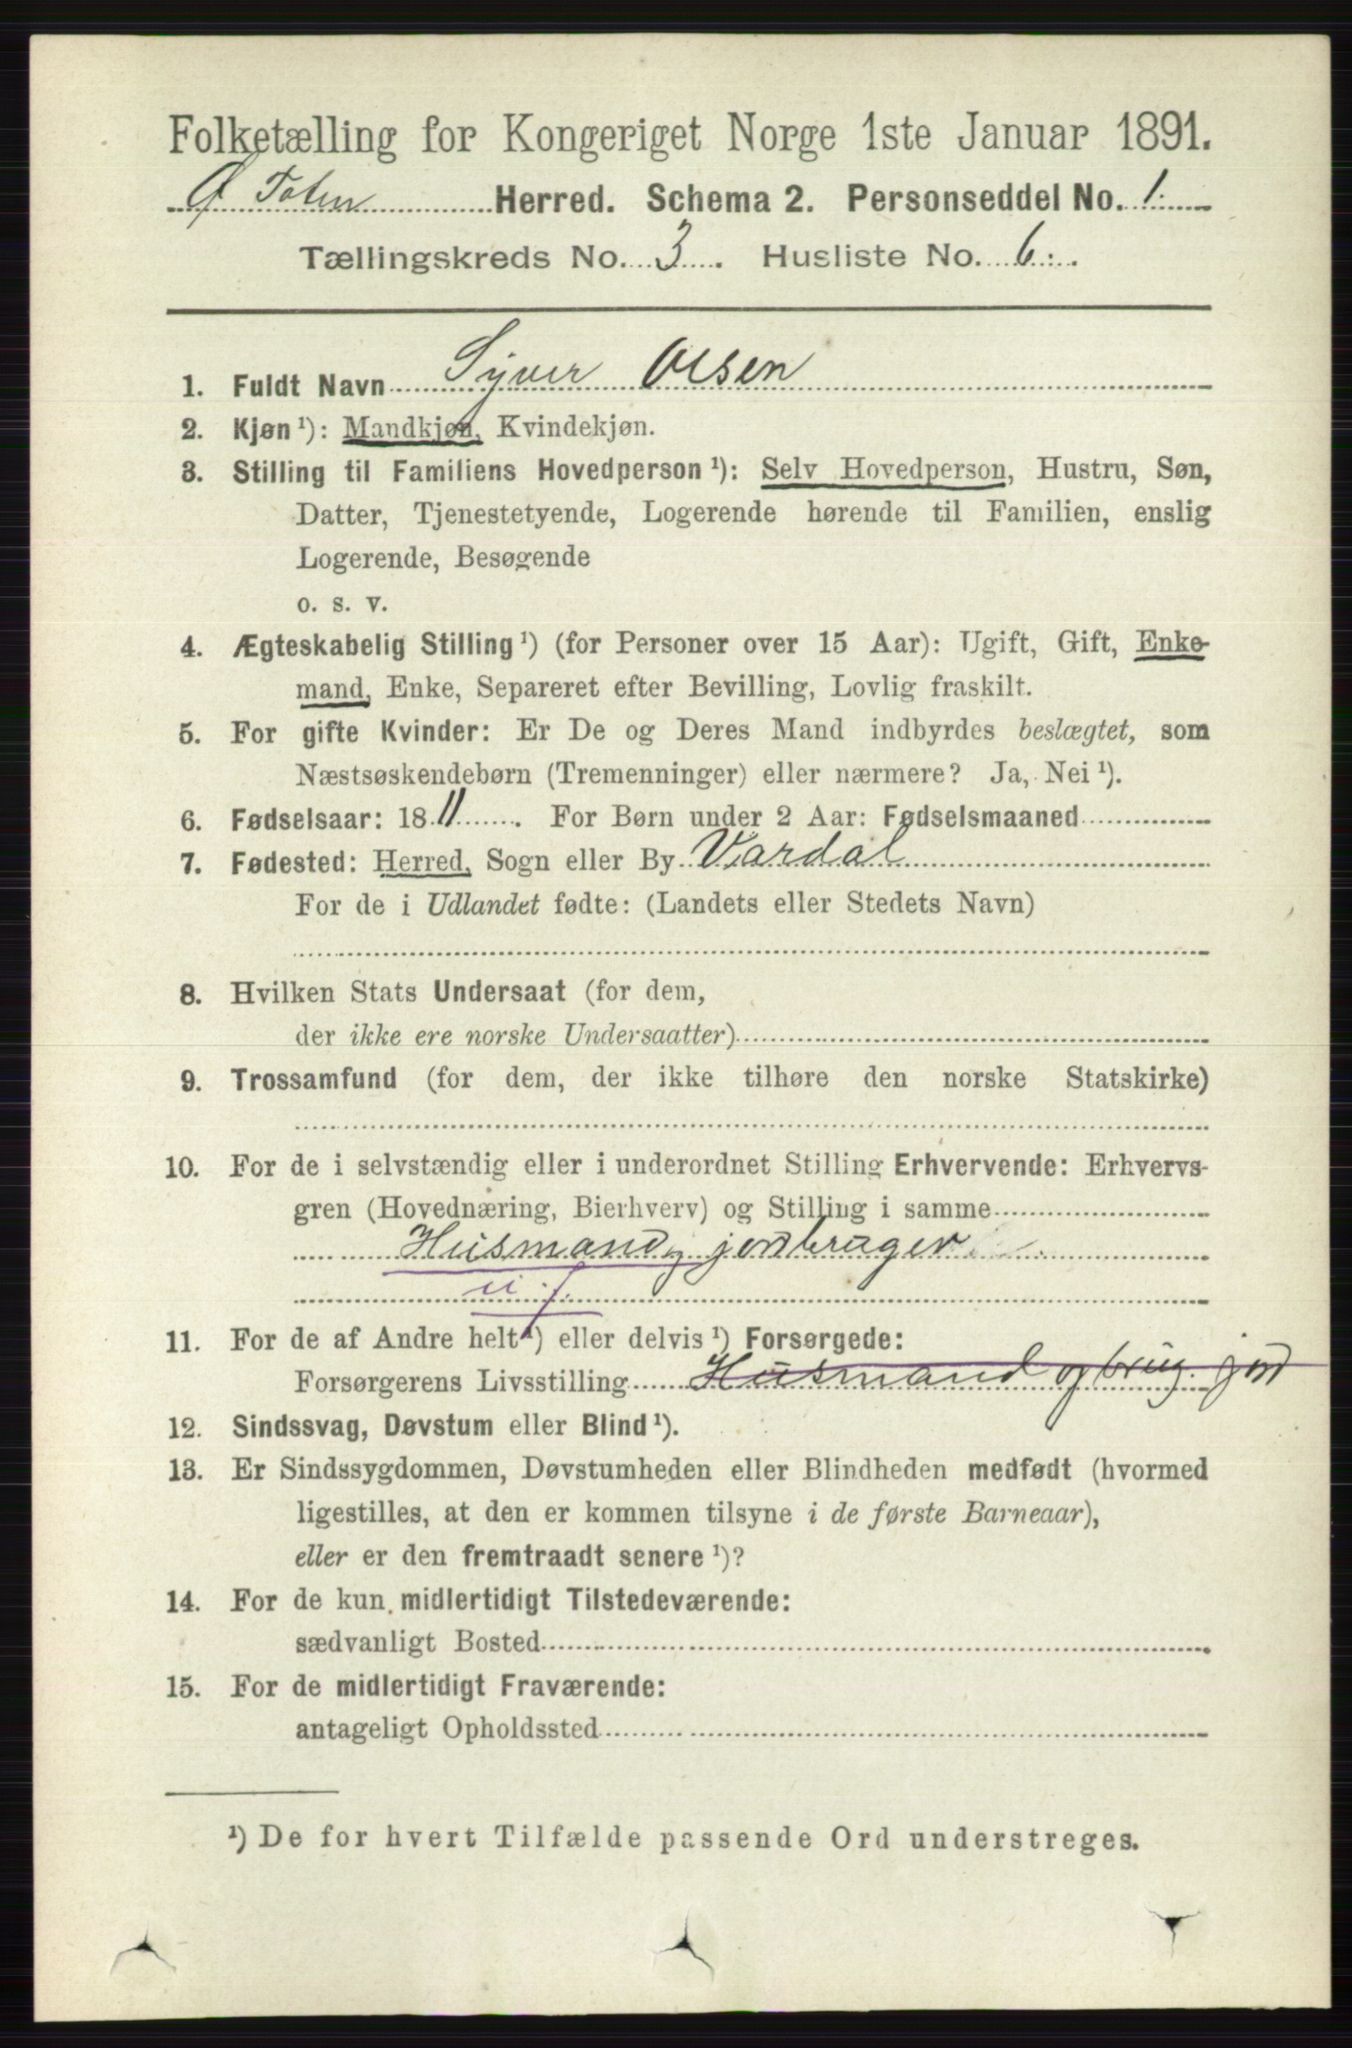 Folketælling for Kongeriget Norge 1ste Januar 1891.
Ø Toten Herred. Schema 2. Personseddel No. 1.
Tællingskreds No. 3. Husliste No. 6.
1. Fuldt Navn Syver Olsen
2. Kjøn¹): Mandkjøn, Kvindekjøn.
3. Stilling til Familiens Hovedperson¹): Selv Hovedperson, Hustru, Søn,
Datter, Tjenestetyende, Logerende hørende til Familien, enslig
Logerende, Besøgende
o. s. v.
4. Ægteskabelig Stilling¹) (for Personer over 15 Aar): Ugift, Gift, Enke-
mand, Enke, Separeret efter Bevilling, Lovlig fraskilt.
5. For gifte Kvinder: Er De og Deres Mand indbyrdes beslægtet, som
Næstsøskendebørn (Tremenninger) eller nærmere? Ja, Nei¹).
6. Fødselsaar: 1811. For Børn under 2 Aar: Fødselsmaaned
7. Fødested: Herred, Sogn eller By Vardal
For de i Udlandet fødte: (Landets eller Stedets Navn)
8. Hvilken Stats Undersaat (for dem,
der ikke ere norske Undersaatter)
9. Trossamfund (for dem, der ikke tilhøre den norske Statskirke)
10. For de i selvstændig eller i underordnet Stilling Erhvervende: Erhvervs-
gren (Hovednæring, Bierhverv) og Stilling i samme
Husmand, jordbruger
11. For de af Andre helt¹) eller delvis¹) Forsørgede:
Forsørgerens Livsstilling Husmand og brug. jord
12. Sindssvag, Døvstum eller Blind¹).
13. Er Sindssygdommen, Døvstumheden eller Blindheden medfødt (hvormed
ligestilles, at den er kommen tilsyne i de første Barneaar),
eller er den fremtraadt senere¹)?
14. For de kun midlertidigt Tilstedeværende:
sædvanligt Bosted
15. For de midlertidigt Fraværende:
antageligt Opholdssted
¹) De for hvert Tilfælde passende Ord understreges.